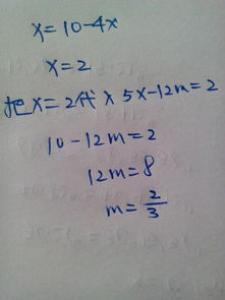 x=10-4x
x=2
把x=2代入5x-12m=2
10-12m=2
12m=8
m=2/3